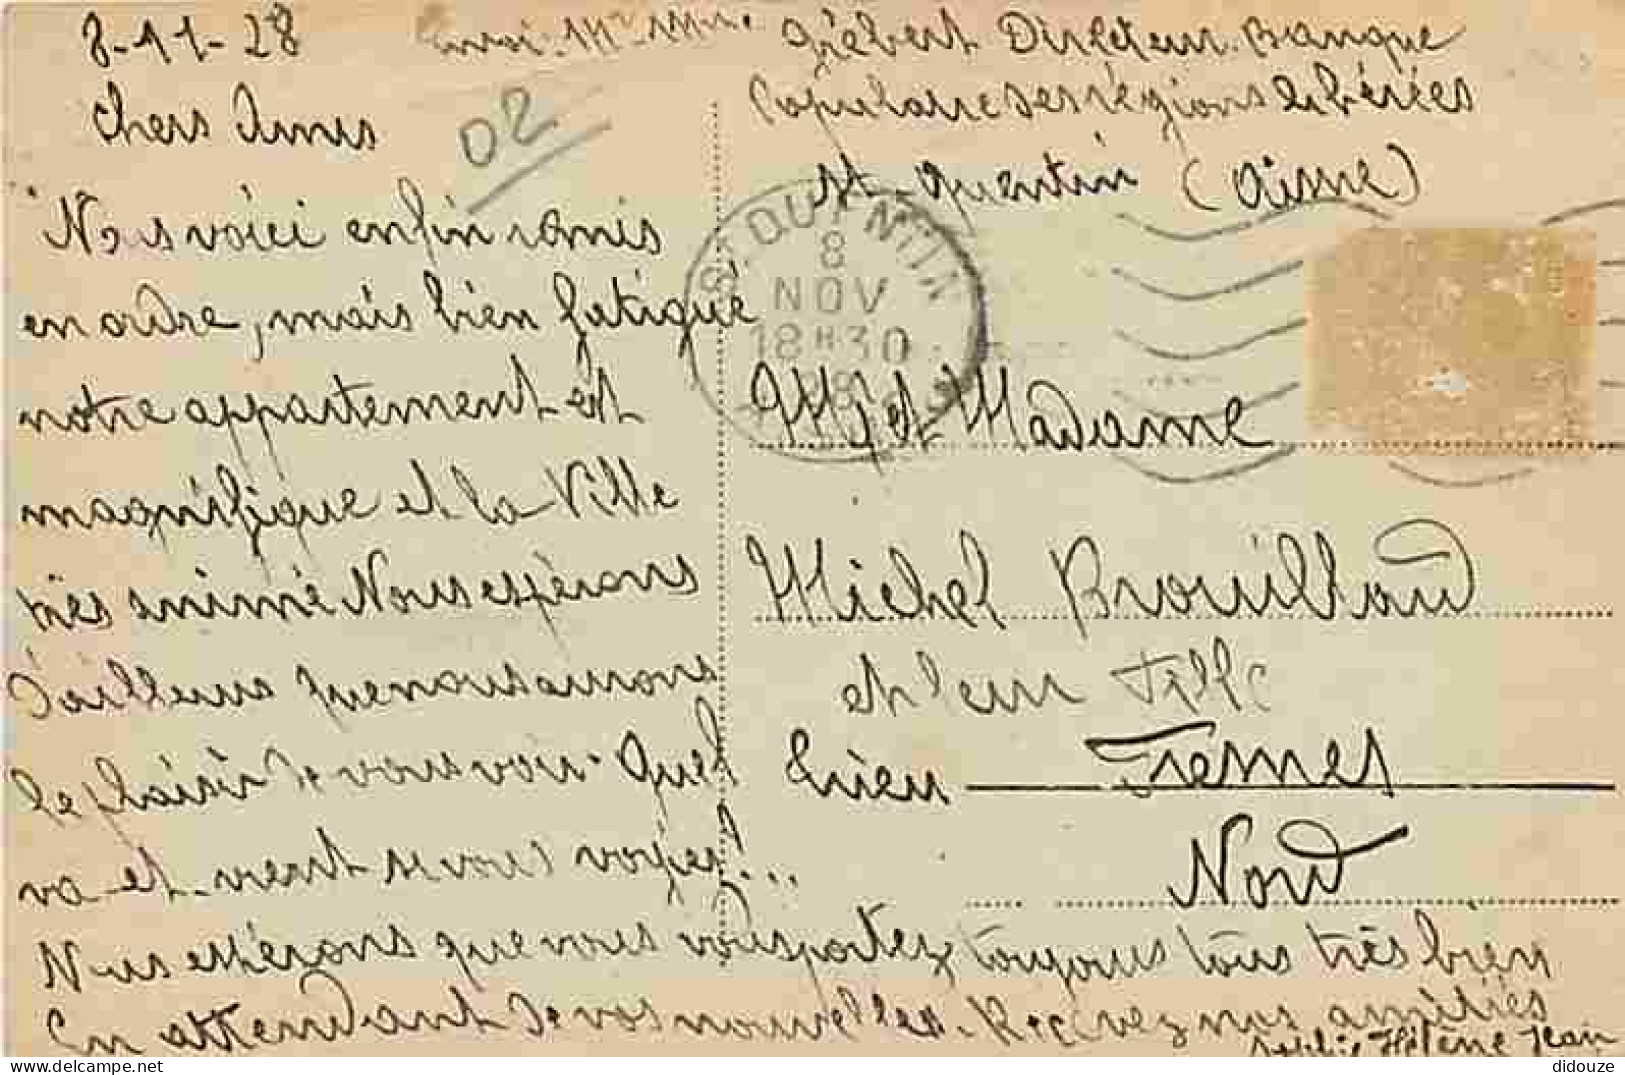 8-11-28
Envoi Mr Mme Giébert Directeur Banque
Populaire des régions libérées
St Quentin (Aisne)
02
Chers Amis
Nous voici enfin remis
en ordre, mais bien fatigué
notre appartement est
magnifique et la Ville
très animé Nous espérons
d'ailleurs que nous aurons
le plaisir de vous voir. Quel
va et vient si vous voyiez!...
Nous espérons que vous vous portez toujours tous très bien
En attendant de vos nouvelles. Recevez nos amitiés
Hélène Jean
ST QUENTIN
8
NOV
18H30
28
M et Madame
Michel Brouillard
et leur Fille
Lieu Fresnes
Nord
didouze
delcampe.net